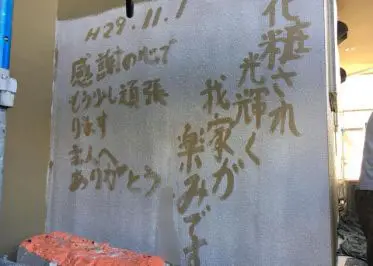 化粧され
光輝く
我家が
楽みです
H29.11.1
感謝の心で
もう少し頑張
ります
主人へ
ありがとう